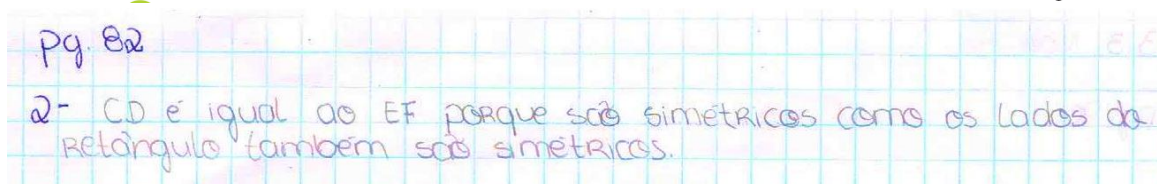 pg. 82
2- CD é igual ao EF porque são simétricos como os lados do
retângulo também são simétricos.